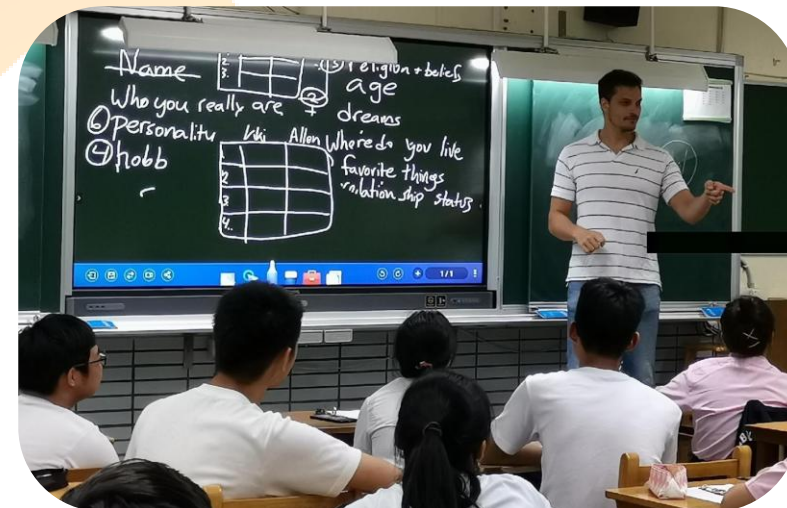 Name
1.
2.
3.
③ religion + beliefs
age
Who you really are
②
+
dreams
⑥ personality
④ hobb
Allen
Where do you live
favorite things
relationship status
2
3
4..
1/1